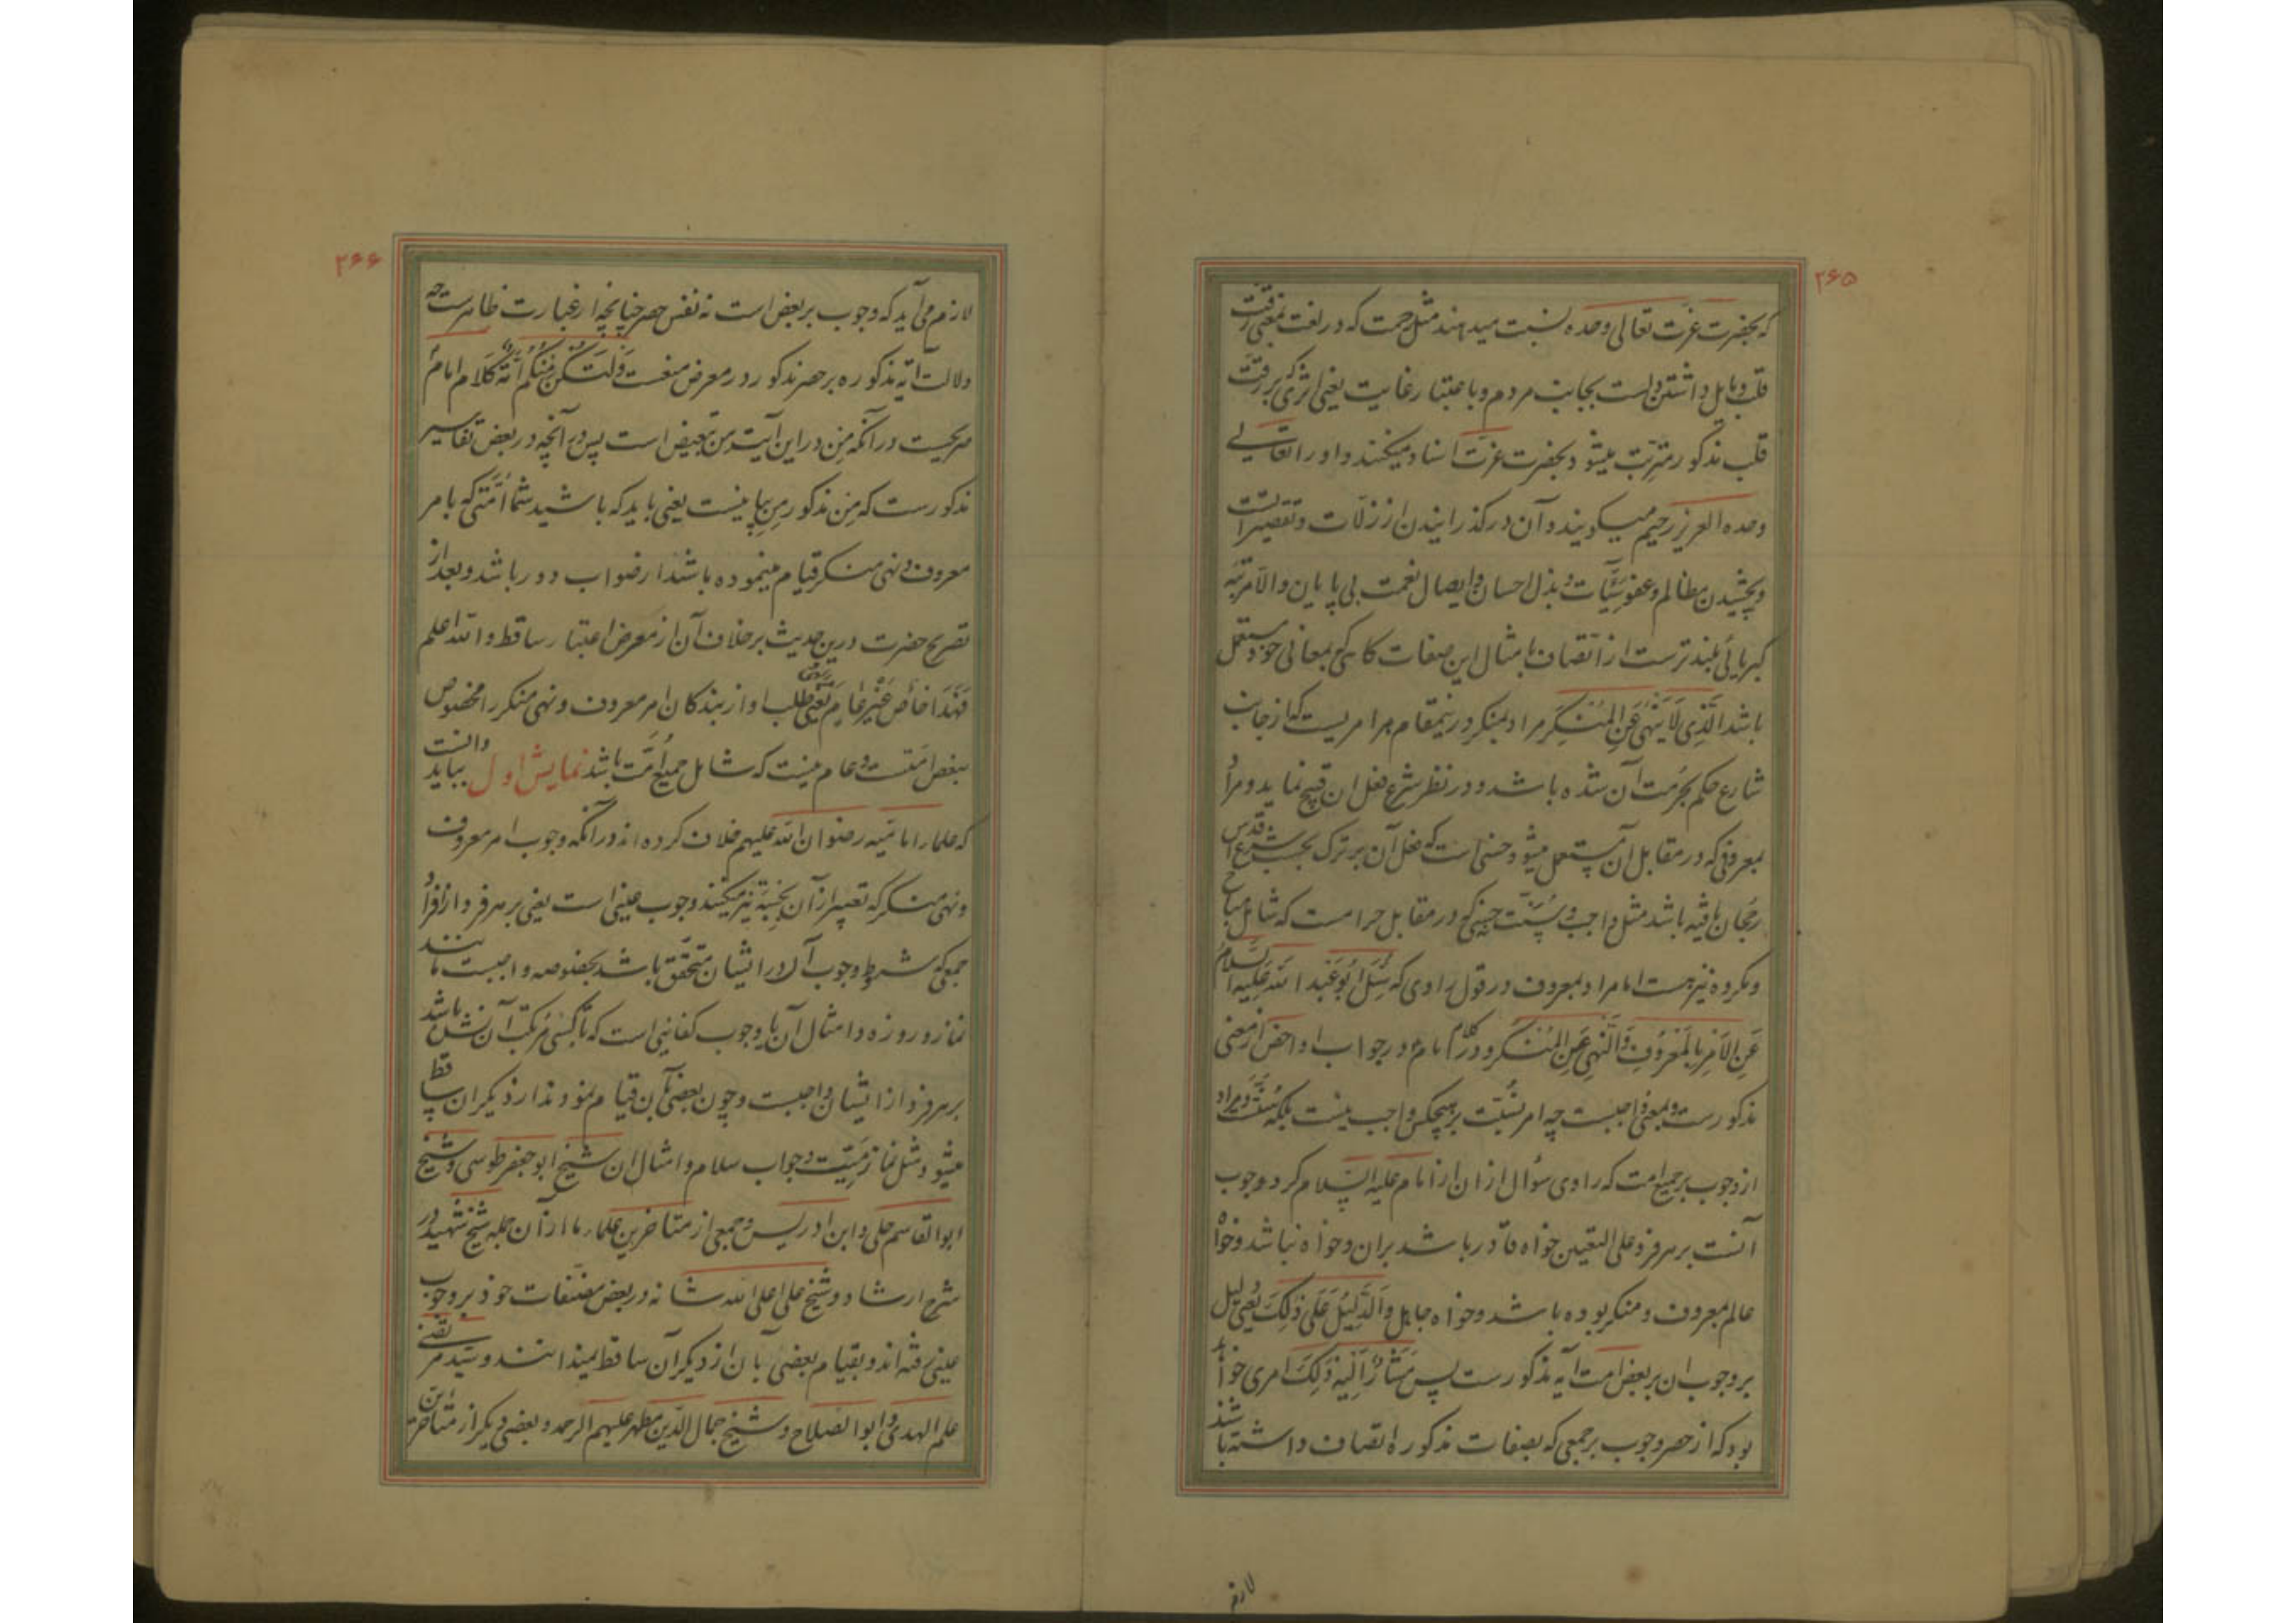 ۲۶۵
که بحضرت عزت تعالی وحده نسبت میدهند مثل رحمت که در لغت بمعنی رقت
قلب و مایل داشتن است بجانب مردم و باعتبار غایت یعنی اثری که بر رقت
قلب مذکور مترتب میشود بحضرت عزت اسناد میکنند و او را تعالی
وحده العزیز رحیم میگویند و آن درگذرانیدن از زلات و تقصیرات
و بخشیدن مظالم و عفو سیّئات و بذل احسان و ایصال نعمت بی پایان و الا مرتبه
کبریائی بلندترست از اتّصاف بامثال این صفات گاهی که بمعانی خود مستعمل
باشد الَّذِی لَا یَنْهَی عَنِ المُنْکَرِ مراد بمنکر درینمقام هر امریست که از جانب
شارع حکم بحرمت آن شده باشد و در نظر شرع فعل ان قبیح نماید و مراد
بمعروفی که در مقابل آن مستعمل میشود حسنی است که فعل آن بر ترک بحسب شرع اقدس
رجحان یافته باشد مثل واجب و سنّت چه که در مقابل حرامست که شامل مباح
و مکروه نیز هست اما مراد بمعروف در قول راوی که سُئِلَ اَبُو عَبْدِ اللّه عَلَیهِ السَّلامُ
عَنِ الاَمْرِ بِالمَعْرُوفِ وَالنَّهْیِ عَنِ المُنْکَرِ و در کلام امام در جواب او اخص از معنی
مذکورست و بمعنی واجبست چه امر بسُنّت بر هیچکس واجب نیست بلکه سُنّتست و مراد
از وجوب بر جمیع امت که راوی سؤال از ان از امام علیه السّلام کرد وجوب
آنست بر هر فرد علی التعیین خواه قادر باشد بران و خواه نباشد و خواه
عالم بمعروف و منکر بوده باشد و خواه جاهل وَالدَّلِیلُ عَلَی ذٰلِکَ یعنی دلیل
بر وجوب ان بر بعض امت آیه مذکورست پس مشارٌ اِلَیه ذٰلِکَ امری خواهد
بود که از حصر وجوب بر جمعی که بصفات مذکوره اتصاف داشته باشند
لازم
۲۶۶
لازم می آید که وجوب بر بعض است نه نفس حصر چنانچه از عبارت ظاهرست چه
دلالت آیه مذکوره بر حصر مذکور در معرض منعست وَلْتَکُنْ مِنْکُمْ اُمَّةٌ کلام امام
صریحست در آنکه مِن در این آیت مِن تبعیض است پس آنچه در بعض تفاسیر
مذکورست که مِن مذکور مِن بیانیست یعنی باید که باشید شما اُمّتی که بامر
معروف و نهی منکر قیام مینموده باشند از صواب دور باشد و بعد از
تصریح حضرت درین حدیث بر خلاف آن از معرض اعتبار ساقط و الله اعلم
فَهَذَا خاصٌ غَیْرُ عَامٍ یعنی طلب او از بندگان امر معروف و نهی منکر را مخصوص
ببعض امتست و عام نیست که شامل جمیع اُمّت باشد نمایش اول بباید دانست
که علماء امامیّه رضوان الله علیهم خلاف کرده اند در آنکه وجوب امر معروف
و نهی منکر که تعبیر از آن بحسبة نیز میکنند وجوب عینی است یعنی بر هر فرد از افراد
جمعی که شروط وجوب آن در ایشان متحقّق باشد بخصوصه واجبست مانند
نماز و روزه و امثال آن یا وجوب کفائیی است که تا کسی مرتکب آن نشده باشد
بر هر فرد از ایشان واجبست و چون بعضی بآن قیام نمودند از دیگران ساقط
میشود مثل نماز میّت و جواب سلام و امثال ان شیخ ابو جعفر طوسی و شیخ
ابو القاسم حلی و ابن ادریس و جمعی از متاخرین علماء ما از آن جمله شیخ شهید در
شرح ارشاد و شیخ علی اعلی الله شانه در بعض مصنّفات خود بر وجوب
عینی رفته اند و بقیام بعضی بان از دیگران ساقط نمیدانند و سید مرتضی
علم الهدی و ابو الصلاح و شیخ جمال الدّین مطهر علیهم الرحمه و بعضی دیگر از متاخرین